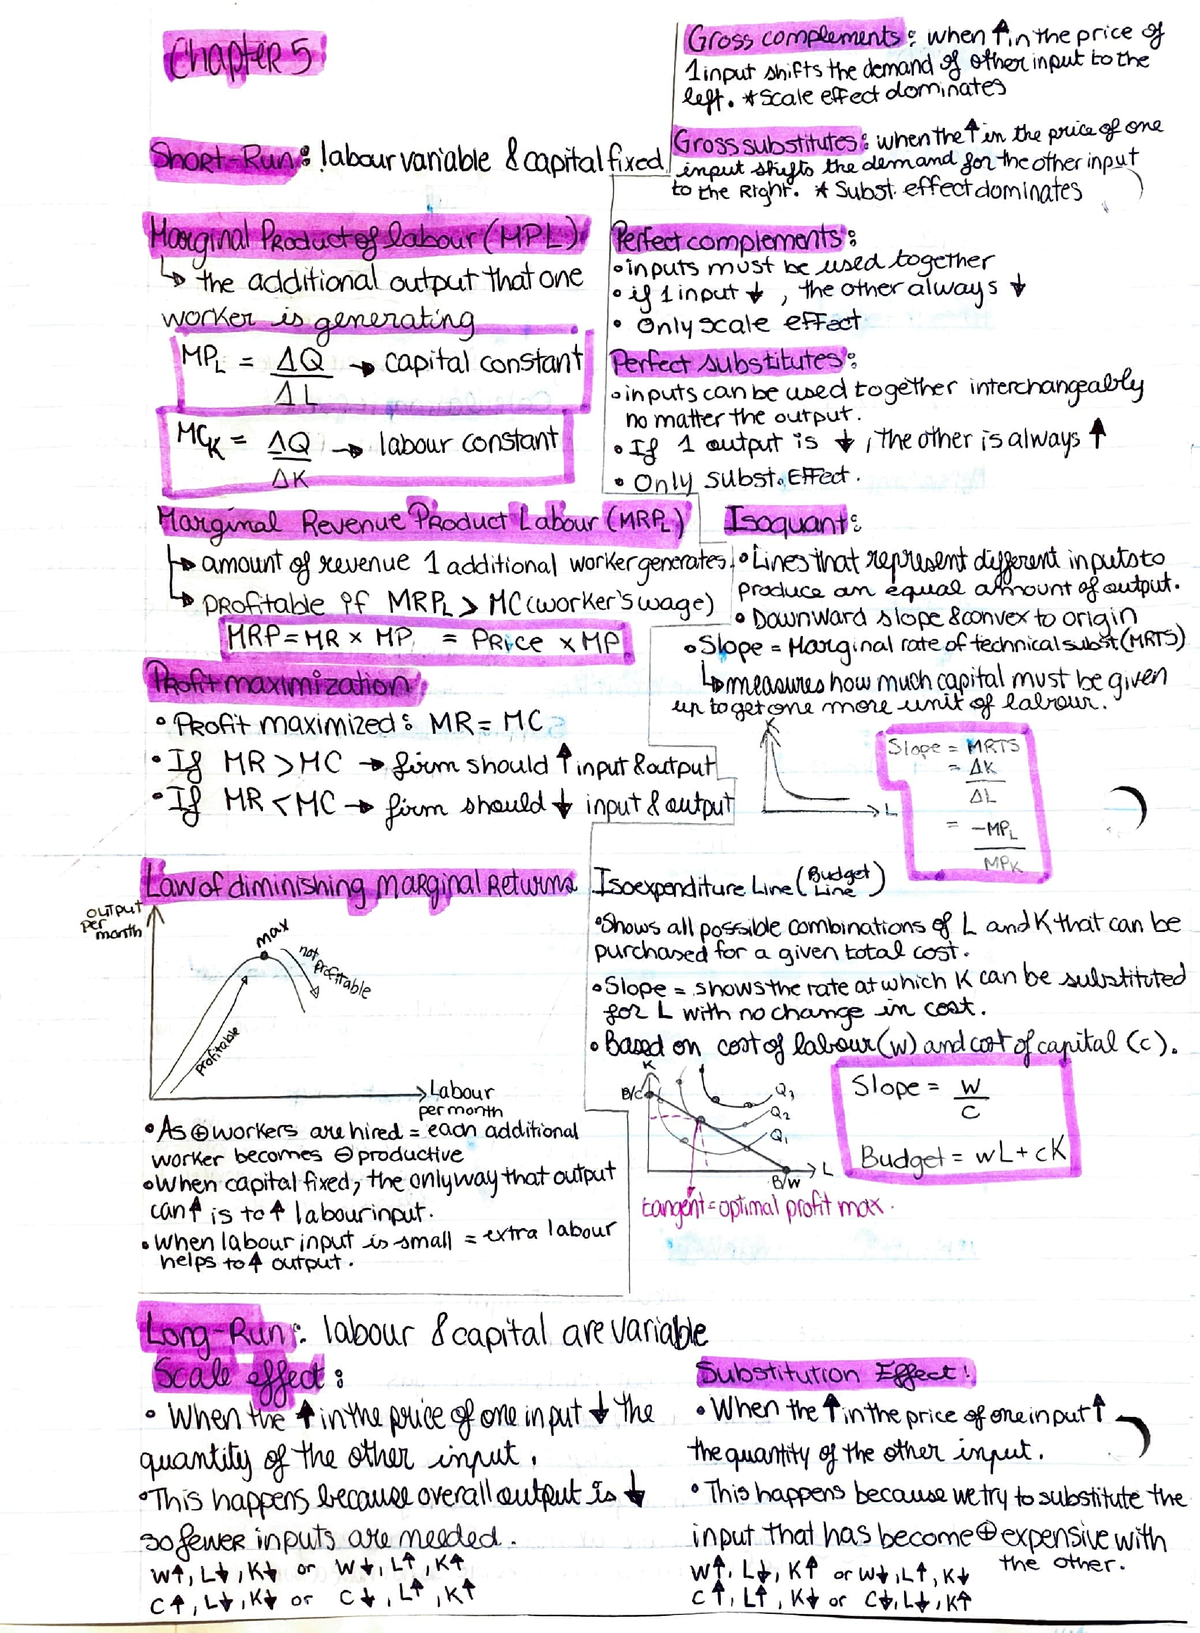 Chapter 5
Short-Run: labour variable & capital fixed
Marginal Product of labour (MPL)
↳ the additional output that one
worker is generating
MP_L = ΔQ → capital constant
ΔL
MC_K = ΔQ → labour constant
ΔK
Marginal Revenue Product Labour (MRP_L)
↳ amount of revenue 1 additional worker generates
↳ profitable if MRP_L > MC (worker's wage)
MRP = MR × MP = Price × MP
Profit maximization
• Profit maximized: MR = MC
• If MR > MC → firm should ↑ input & output
• If MR < MC → firm should ↓ input & output
Law of diminishing Marginal Returns
output
per
month
max
not
profitable
profitable
Labour
per month
• As ⊕ workers are hired = each additional
worker becomes ⊖ productive
• When capital fixed, the only way that output
can ↑ is to ↑ labour input.
• When labour input is small = extra labour
helps to ↑ output.
Gross complements: when ↑ in the price of
1 input shifts the demand of other input to the
left. * Scale effect dominates
Gross substitutes: when the ↑ in the price of one
input shifts the demand for the other input
to the Right. * Subst. effect dominates
Perfect complements:
• inputs must be used together
• if 1 input ↓, the other always ↓
• Only scale effect
Perfect substitutes:
• inputs can be used together interchangeably
no matter the output.
• If 1 output is ↓, the other is always ↑
• Only Subst. Effect.
Isoquant:
• Lines that represent different inputs to
produce an equal amount of output.
• Downward slope & convex to origin
• Slope = Marginal rate of technical subst (MRTS)
↳ measures how much capital must be given
up to get one more unit of labour.
K
L
Slope = MRTS
= ΔK
ΔL
= -MP_L
MP_K
Isoexpenditure Line (Budget Line)
• Shows all possible combinations of L and K that can be
purchased for a given total cost.
• Slope = shows the rate at which K can be substituted
for L with no change in cost.
• Based on cost of labour (w) and cost of capital (c).
K
B/C
Q3
Q2
Q1
L
B/w
tangent = optimal profit max.
Slope = w
c
Budget = wL + cK
Long-Run: labour & capital are variable
Scale effect:
• When the ↑ in the price of one input ↓ the
quantity of the other input.
• This happens because overall output is ↓
so fewer inputs are needed.
W↑, L↓, K↓ or W↓, L↑, K↑
C↑, L↓, K↓ or C↓, L↑, K↑
Substitution Effect!
• When the ↑ in the price of one input ↑
the quantity of the other input.
• This happens because we try to substitute the
input that has become ⊕ expensive with
the other.
W↑, L↓, K↑ or W↓, L↑, K↓
C↑, L↑, K↓ or C↓, L↓, K↑